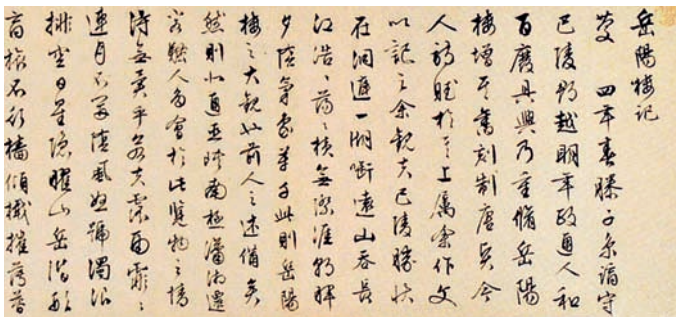 岳陽樓記
慶 四年春滕子京謫守
巴陵郡越明年政通人和
百廢具興乃重脩岳陽
樓增其舊刻制唐賢今
人詩賦於其上屬余作文
以記之余觀夫巴陵勝狀
在洞庭一湖銜遠山吞長
江浩〻蕩〻橫無際涯朝暉
夕陰氣象萬千此則岳陽
樓之大觀也前人之述備矣
然則北通巫峽南極瀟湘遷
客騷人多會於此覽物之情
得無異乎若夫霪雨霏〻
連月不開陰風怒號濁浪
排空日星隱曜山岳潛形
商旅不行檣傾楫摧薄暮